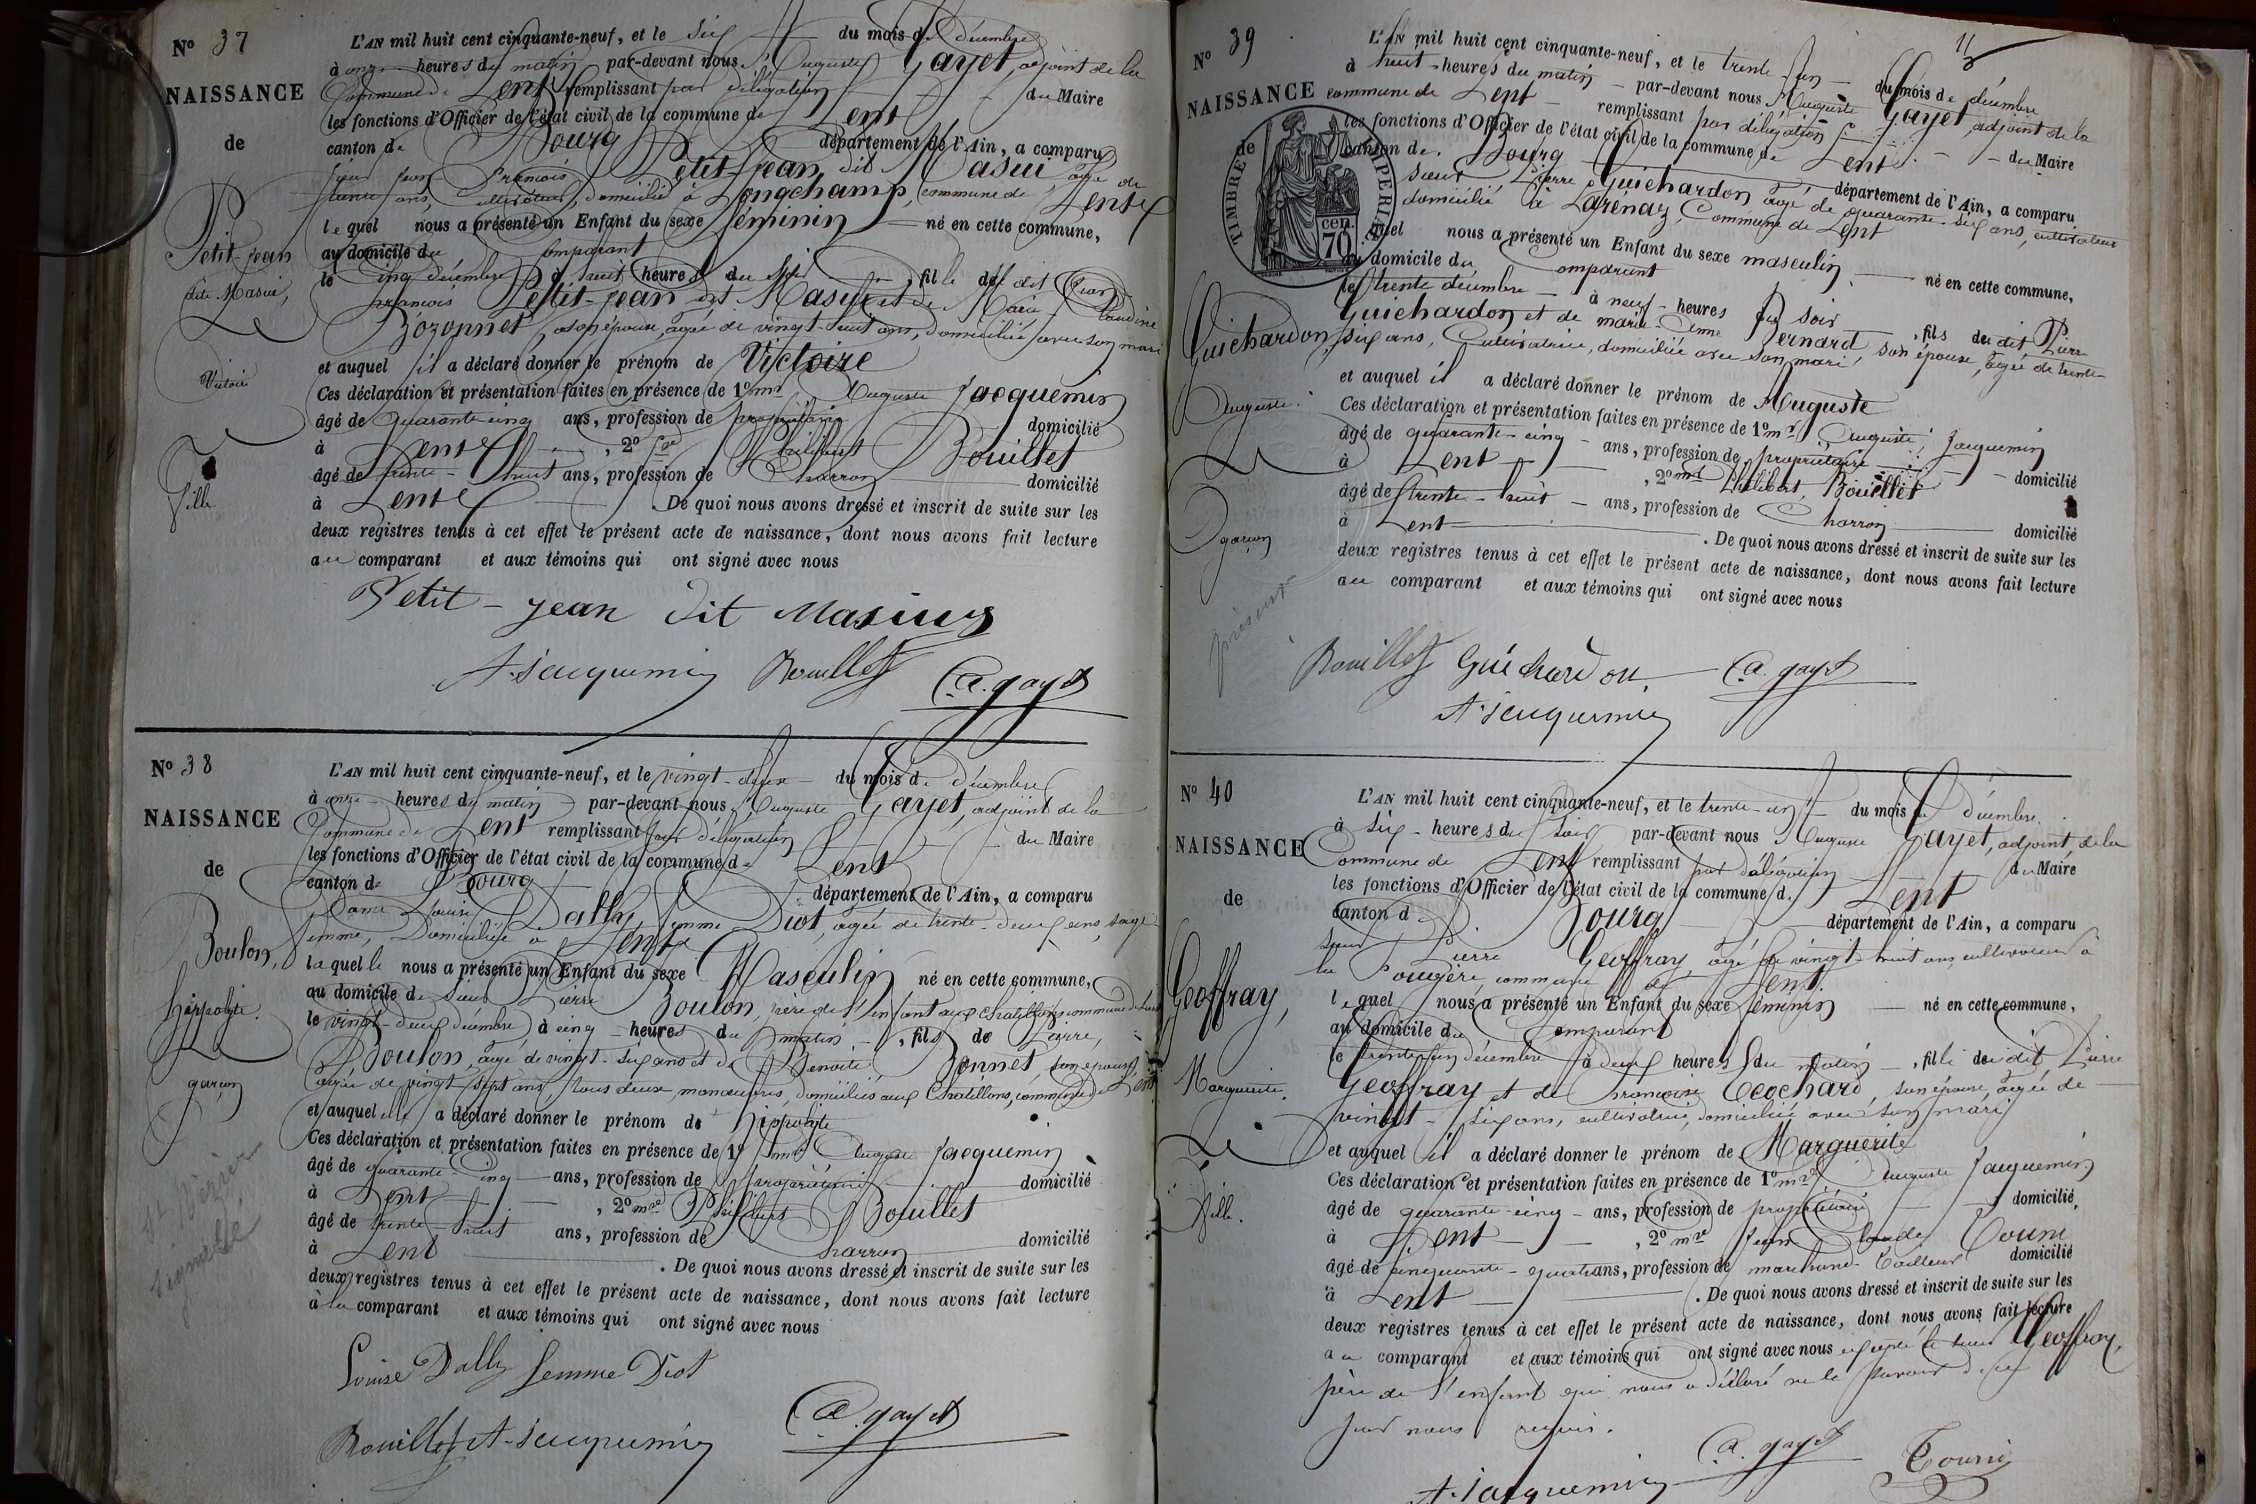 N° 37
NAISSANCE
de
Petit-jean
dite Masui,
Victoire
Fille
L'AN mil huit cent cinquante-neuf, et le six du mois de décembre
à onze heures du matin par-devant nous Auguste Gayet, adjoint de la
Commune de Lent remplissant par délégation du Maire
les fonctions d'Officier de l'état civil de la commune de Lent
canton de Bourg département de l'Ain, a comparu
sieur jean François Petit-jean dit Masui, âgé de
trente ans, cultivateur, domicilié à Longchamp, commune de Lent
lequel nous a présenté un Enfant du sexe féminin né en cette commune,
au domicile du comparant
le cinq décembre à huit heures du soir, fille du dit jean
françois Petit-jean dit Masui et de Marie Claudine
Bozonnet, son épouse, âgée de vingt-huit ans, domiciliée avec son mari
et auquel il a déclaré donner le prénom de Victoire
Ces déclaration et présentation faites en présence de 1° mr Auguste Jacquemin
âgé de quarante-cinq ans, profession de propriétaire domicilié
à Lent, 2° Philibert Bouillet
âgé de trente-huit ans, profession de Charron domicilié
à Lent. De quoi nous avons dressé et inscrit de suite sur les
deux registres tenus à cet effet le présent acte de naissance, dont nous avons fait lecture
au comparant et aux témoins qui ont signé avec nous
Petit-jean dit Masius
A. Jacquemin Bouillet a. gayet
N° 38
NAISSANCE
de
Boulon,
hippolyte.
garçon
L'AN mil huit cent cinquante-neuf, et le vingt-deux du mois de décembre
à onze heures du matin par-devant nous Auguste Gayet, adjoint de la
Commune de Lent remplissant par délégation du Maire
les fonctions d'Officier de l'état civil de la commune de Lent
canton de Bourg département de l'Ain, a comparu
Dame Louise Dally, femme Diot, âgée de trente-deux ans, sage-
femme, Domiciliée à Lent
laquelle nous a présenté un Enfant du sexe Masculin né en cette commune,
au domicile de sieur Pierre Boulon, père de l'enfant aux Chatillons commune de Lent
le vingt-deux décembre à cinq heures du matin, fils de Pierre,
Boulon, âgé de vingt-six ans et de Benoite Bonnet, son épouse,
âgée de vingt-sept ans, tous deux manœuvres, domiciliés aux Chatillons, commune de Lent
et auquel elle a déclaré donner le prénom de hippolyte
Ces déclaration et présentation faites en présence de 1° mr Auguste Jacquemin
âgé de quarante-cinq ans, profession de propriétaire domicilié
à Lent, 2° mr Philibert Bouillet
âgé de trente-huit ans, profession de Charron domicilié
à Lent. De quoi nous avons dressé et inscrit de suite sur les
deux registres tenus à cet effet le présent acte de naissance, dont nous avons fait lecture
à la comparant et aux témoins qui ont signé avec nous
Louise Dally femme Diot
Bouillet A. Jacquemin a. gayet
N° 39
NAISSANCE
de
TIMBRE IMPERIAL
70 cen.
Guichardon,
Auguste.
garçon
L'AN mil huit cent cinquante-neuf, et le trente-un du mois de décembre
à huit heures du matin par-devant nous Auguste Gayet, adjoint de la
commune de Lent remplissant par délégation du Maire
les fonctions d'Officier de l'état civil de la commune de Lent
canton de Bourg département de l'Ain, a comparu
sieur Pierre Guichardon âgé de quarante-six ans, cultivateur
domicilié à Larénaz, Commune de Lent
lequel nous a présenté un Enfant du sexe masculin né en cette commune,
au domicile du Comparant
le trente décembre à neuf heures du soir, fils du dit Pierre
Guichardon et de marie-Anne Bernard son épouse, âgée de trente-
six ans, Cultivatrice, domiciliée avec son mari,
et auquel il a déclaré donner le prénom de Auguste
Ces déclaration et présentation faites en présence de 1° mr Auguste Jacquemin
âgé de quarante-cinq ans, profession de propriétaire domicilié
à Lent, 2° mr Philibert, Bouillet
âgé de trente-huit ans, profession de Charron domicilié
à Lent. De quoi nous avons dressé et inscrit de suite sur les
deux registres tenus à cet effet le présent acte de naissance, dont nous avons fait lecture
au comparant et aux témoins qui ont signé avec nous
Bouillet Guichardon. a. gayet
A. Jacquemin
N° 40
NAISSANCE
de
Geoffray,
Marguerite.
Fille.
L'AN mil huit cent cinquante-neuf, et le trente-un du mois de décembre.
à six heures du soir par-devant nous Auguste Gayet, adjoint de la
Commune de Lent remplissant par délégation du Maire
les fonctions d'Officier de l'état civil de la commune de Lent
canton de Bourg département de l'Ain, a comparu
sieur Pierre Geoffray, âgé de vingt-huit ans, cultivateur à
la Fougère, commune de Lent.
lequel nous a présenté un Enfant du sexe féminin né en cette commune,
au domicile du Comparant
le trente-un décembre à deux heures du matin, fille du dit Pierre
Geoffray et de françoise Cochard, son épouse, âgée de
vingt-six ans, cultivatrice, domiciliée avec son mari
et auquel il a déclaré donner le prénom de Marguerite
Ces déclaration et présentation faites en présence de 1° mr Auguste Jacquemin
âgé de quarante-cinq ans, profession de propriétaire domicilié,
à Lent, 2° mr jean Claude Tourni
âgé de cinquante-quatre ans, profession de marchand-Tailleur domicilié
à Lent. De quoi nous avons dressé et inscrit de suite sur les
deux registres tenus à cet effet le présent acte de naissance, dont nous avons fait lecture
au comparant et aux témoins qui ont signé avec nous excepté le sieur Geoffray,
père de l'enfant qui nous a déclaré ne le savoir de ce
par nous requis.
A. Jacquemin a. gayet Tourni